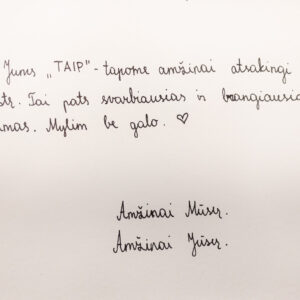 Jums „TAIP" - tapome amžinai atsakingi
Tai pats svarbiausias ir
Mylim be galo. ♡
Amžinai Mūsų.
Amžinai Jūsų.